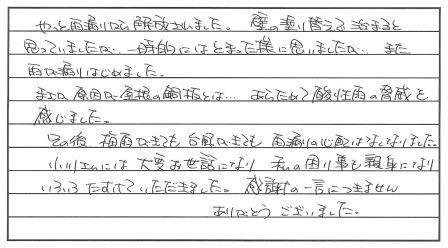 やっと雨漏りから解放されました。壁の塗り替えで治まると
思っていましたが、一時的にはとまった様に思いましたが、また
雨が漏りはじめました。
まさか原因が屋根の銅板とは… あらためて酸性雨の脅威を
感じました。
その後 梅雨がきても台風がきても 雨漏りの心配はなくなりました。
小川さんには 大変お世話になり 私の困り事も親身になり
いろいろ たすけていただきました。 感謝の一言につきません
ありがとう ございました。